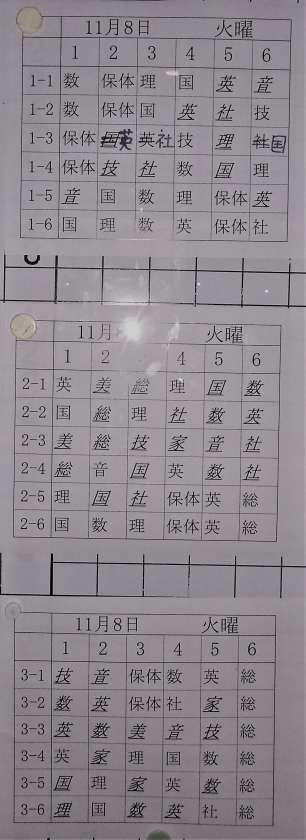 11月8日 火曜
1 2 3 4 5 6
1-1 数 保体 理 国 英 音
1-2 数 保体 国 英 社 技
1-3 保体 英 社 技 理 国
1-4 保体 技 社 数 国 理
1-5 音 国 数 理 保体 英
1-6 国 理 数 英 保体 社
11月 火曜
1 2 4 5 6
2-1 英 美 総 理 国 数
2-2 国 総 理 社 数 英
2-3 美 総 技 家 音 社
2-4 総 音 国 英 数 社
2-5 理 国 社 保体 英 総
2-6 国 数 理 保体 英 総
11月8日 火曜
1 2 3 4 5 6
3-1 技 音 保体 数 英 総
3-2 数 英 保体 社 家 総
3-3 英 数 美 音 技 総
3-4 英 家 理 国 数 総
3-5 国 理 家 英 数 総
3-6 理 国 数 英 社 総